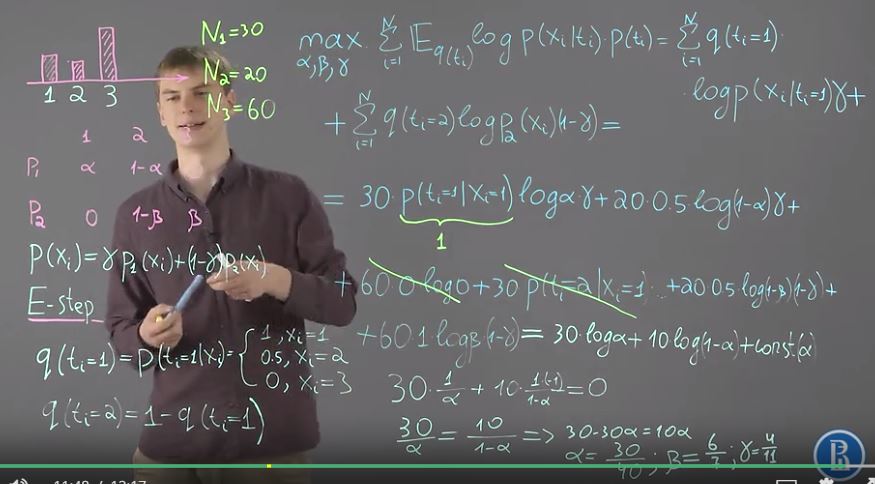 N₁=30
N₂=20
N₃=60
1 2 3
1 2 3
P₁ α 1-α
P₂ 0 1-β β
p(xᵢ)=γ p₁(xᵢ)+(1-γ)p₂(xᵢ)
E-step
q(tᵢ=1)=p(tᵢ=1|xᵢ)= { 1, xᵢ=1
0.5, xᵢ=2
0, xᵢ=3
q(tᵢ=2)=1-q(tᵢ=1)
max α,β,γ Σᵢ₌₁ᴺ 𝔼q(tᵢ) log p(xᵢ|tᵢ)·p(tᵢ)= Σᵢ₌₁ᴺ q(tᵢ=1)·
·log p(xᵢ|tᵢ=1)γ+
+ Σᵢ₌₁ᴺ q(tᵢ=2)log p₂(xᵢ)(1-γ)=
= 30·p(tᵢ=1|xᵢ=1) log α·γ+20·0.5 log(1-α)γ+
1
+60·0 log0+30 p(tᵢ=2|xᵢ=1)...+20·0.5·log(1-β)(1-γ)+
+60·1·logβ(1-γ)= 30·logα+10·log(1-α)+const(α)
30·1/α + 10·1·(-1)/1-α =0
30/α = 10/1-α => 30-30α=10α
α= 30/40; β= 6/7; γ= 4/11